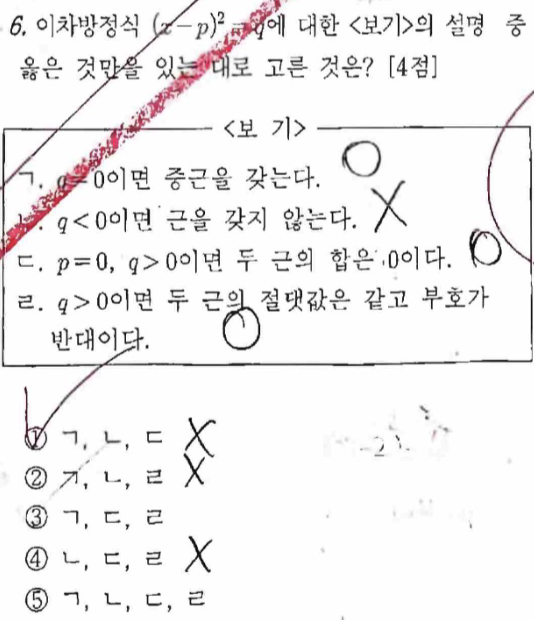 6. 이차방정식 (x-p)² = q에 대한 <보기>의 설명 중
옳은 것만을 있는 대로 고른 것은? [4점]
<보 기>
ㄱ. q=0이면 중근을 갖는다. O
ㄴ. q<0이면 근을 갖지 않는다. X
ㄷ. p=0, q>0이면 두 근의 합은 0이다. O
ㄹ. q>0이면 두 근의 절댓값은 같고 부호가
반대이다. O
① ㄱ, ㄴ, ㄷ X
② ㄱ, ㄴ, ㄹ X
③ ㄱ, ㄷ, ㄹ
④ ㄴ, ㄷ, ㄹ X
⑤ ㄱ, ㄴ, ㄷ, ㄹ